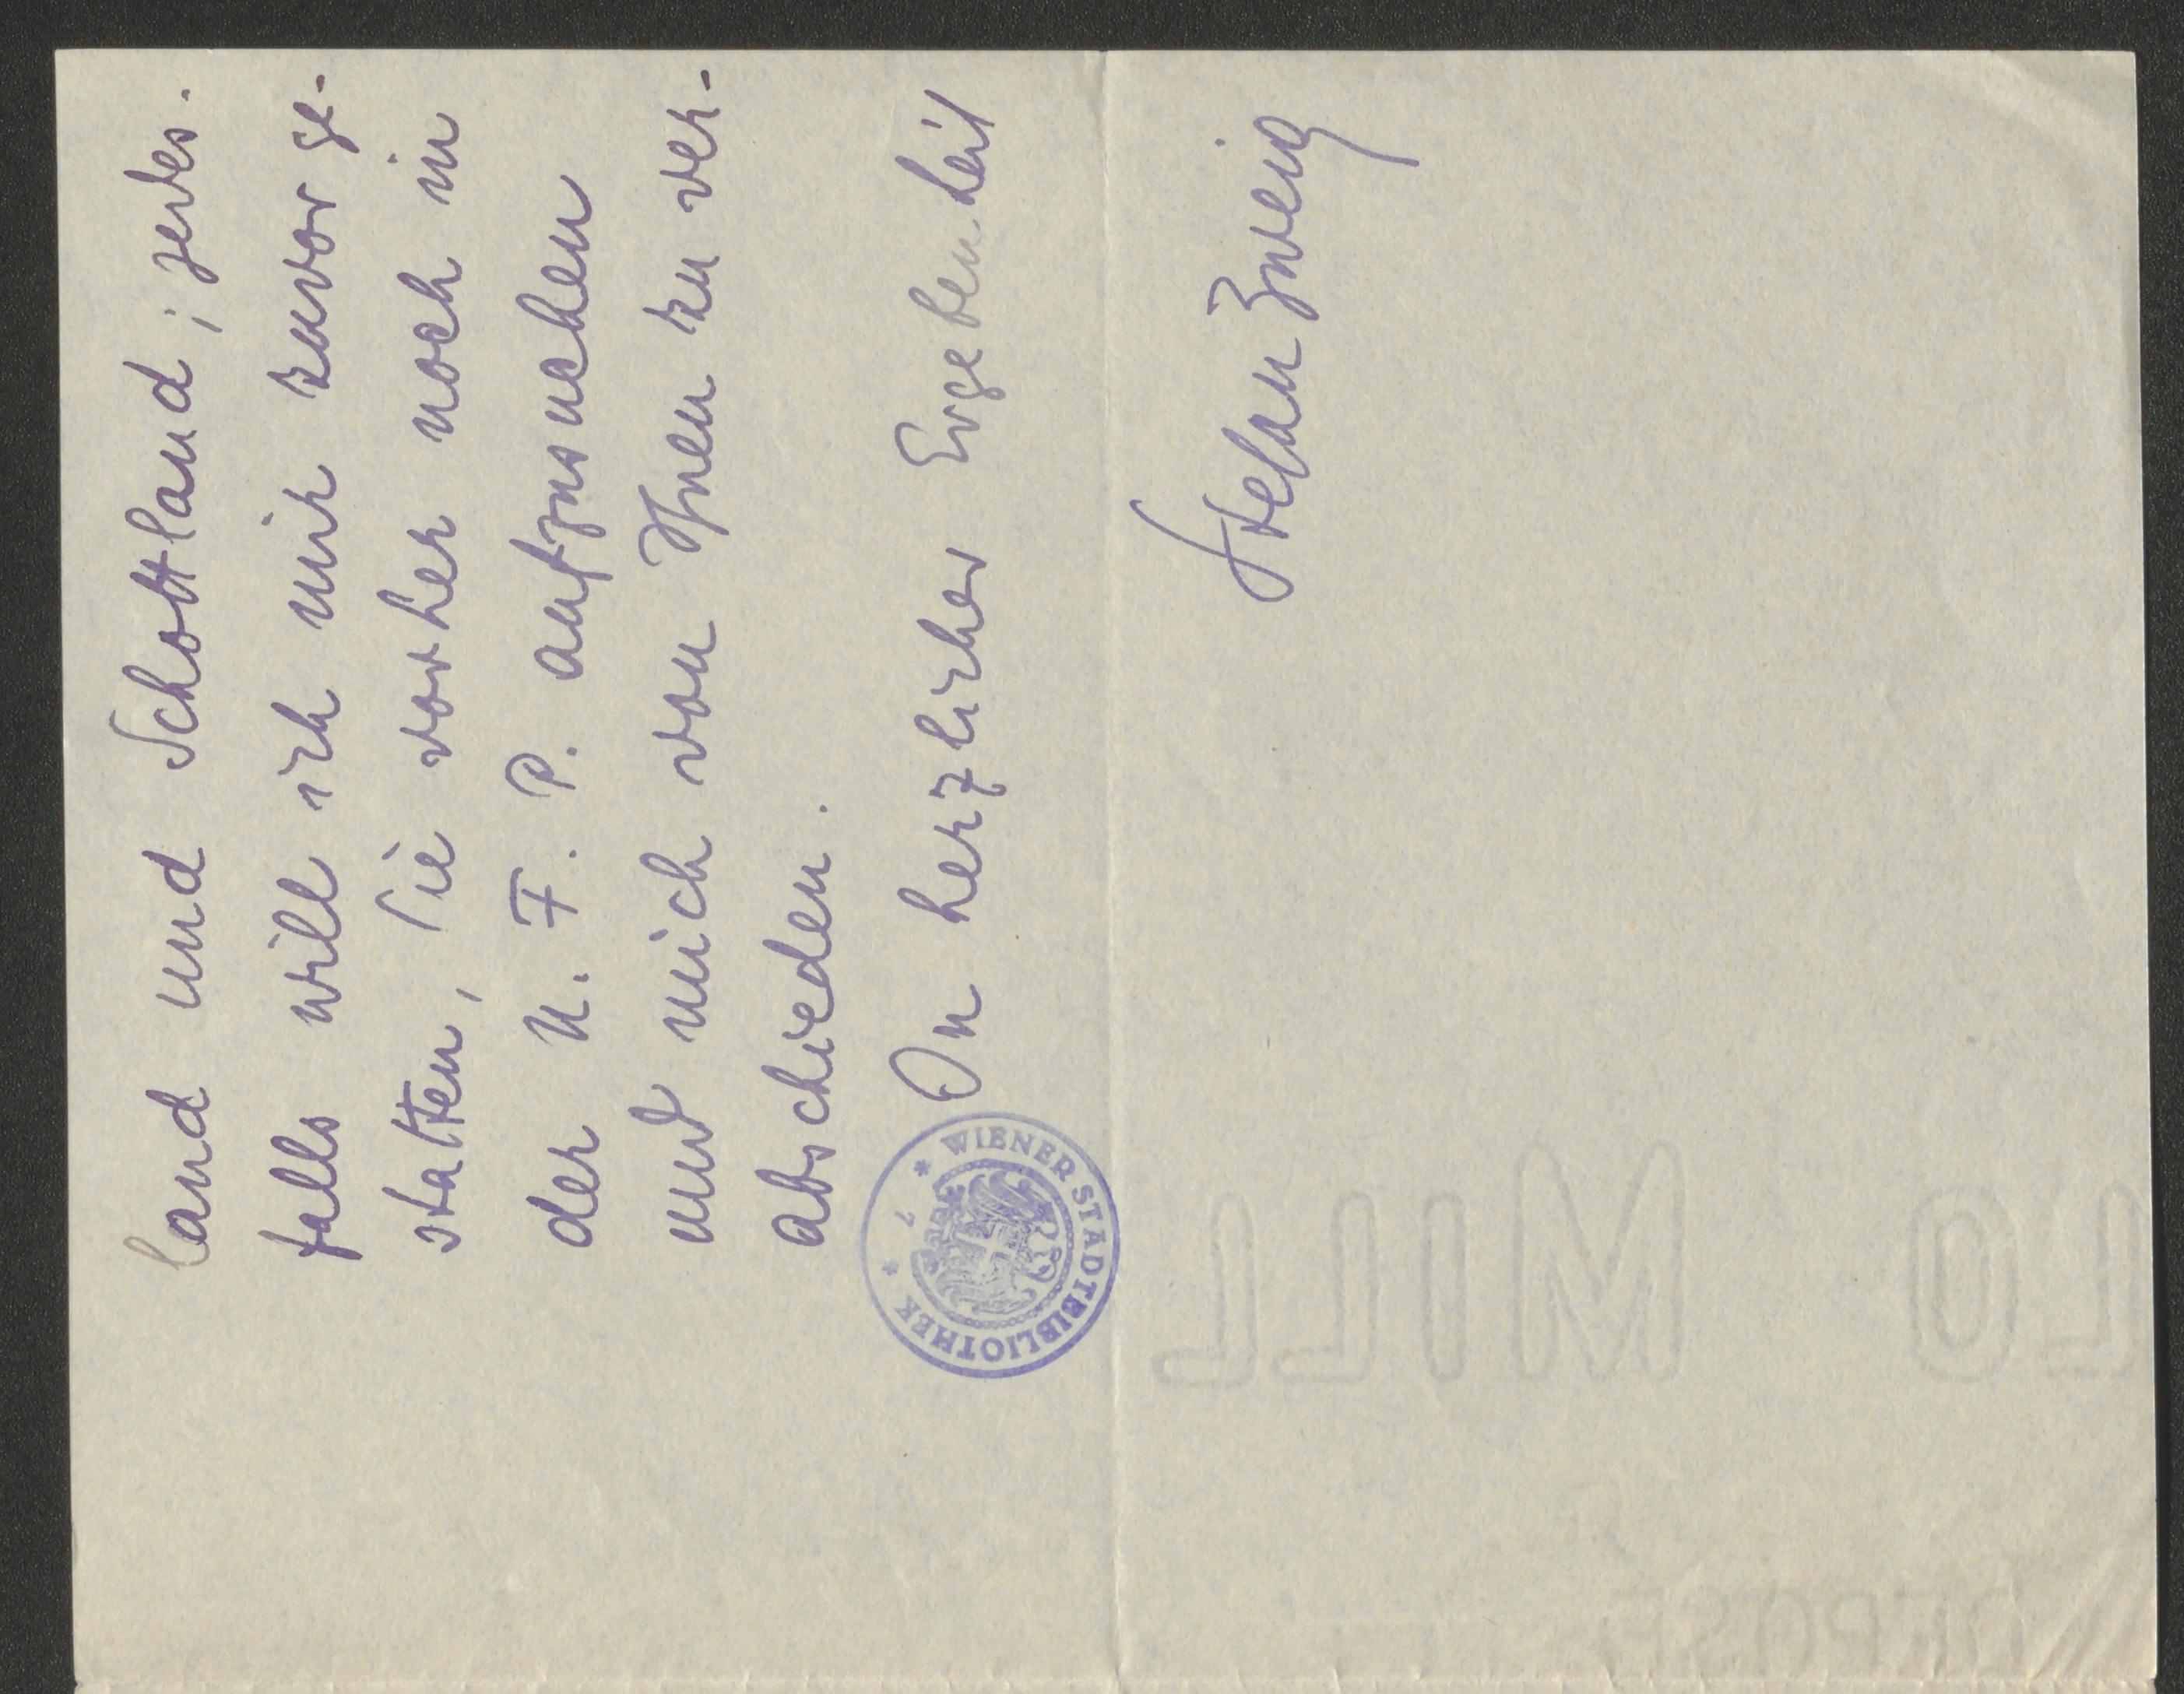 land und Schottland; jedes-
falls will ich mir zuvor ge-
statten, Sie vorher noch in
der N. F. P. aufzusuchen
und mich von Ihnen zu ver-
abschieden.
In herzlicher Ergebenheit
Stefan Zweig
* WIENER STADTBIBLIOTHEK * 7
MILL